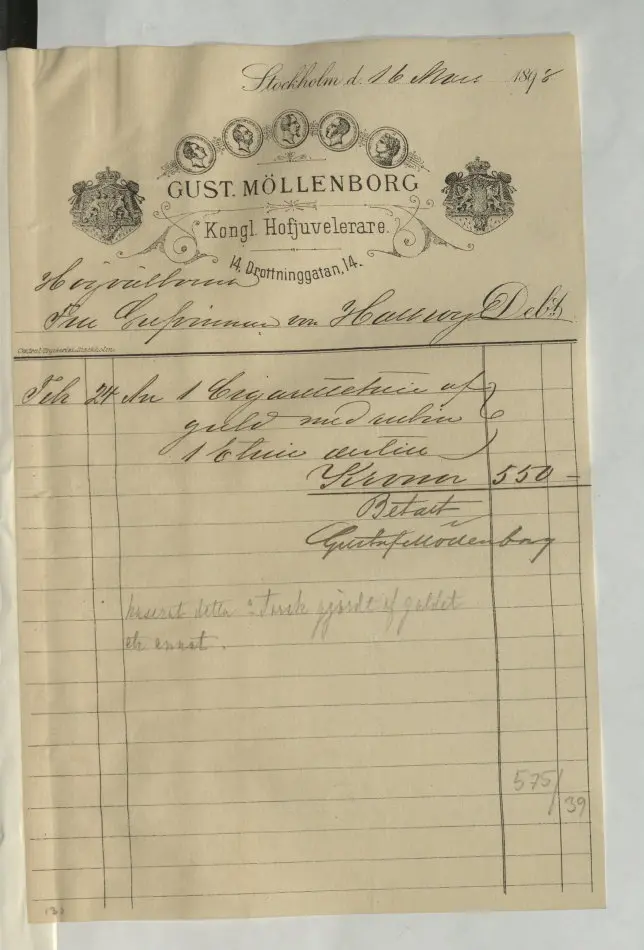 Stockholm d. 16 Mars 1898
GUST. MÖLLENBORG
Kongl. Hofjuvelerare.
14, Drottninggatan, 14.
Högvälborna
Fru Grefvinnan von Hallwyl Debt
Central-Tryckeriet, Stockholm.
Feb 24 An 1 Cigarrettetui af
guld med rubin
1 Etui
Kronor 550 –
Betalt
Gustaf Möllenborg
detta : Tersk gjorde af guldet
ett annat.
575/
39